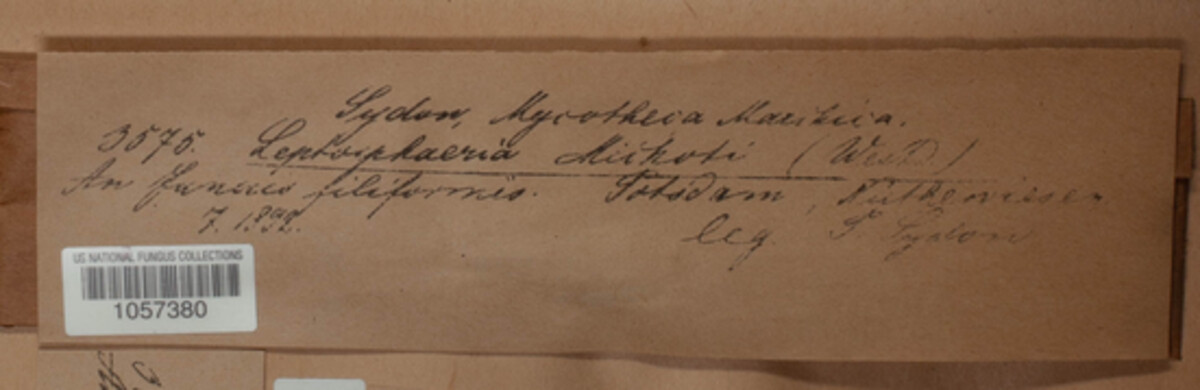 Sydow, Mycotheca Marchica.
3575. Leptosphaeria Michoti (West.)
An Juncus filiformis. Potsdam,
7. 1892.
leg. P. Sydow
US NATIONAL FUNGUS COLLECTIONS
1057380